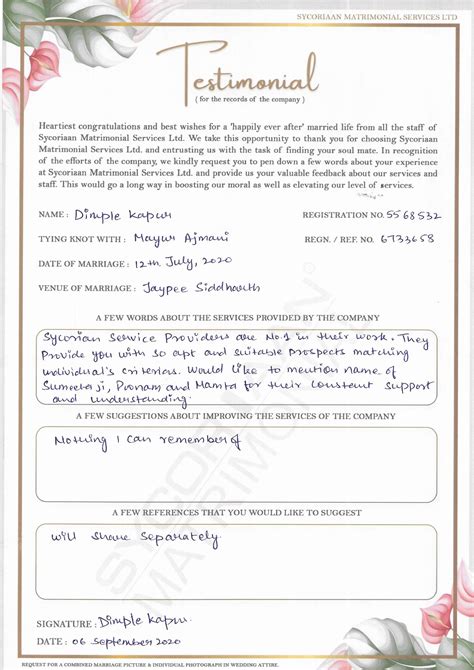 SYCORIAAN MATRIMONIAL SERVICES LTD
Testimonial
( for the records of the company )
Heartiest congratulations and best wishes for a 'happily ever after' married life from all the staff of
Sycoriaan Matrimonial Services Ltd. We take this opportunity to thank you for choosing Sycoriaan
Matrimonial Services Ltd. and entrusting us with the task of finding your soul mate. In recognition
of the efforts of the company, we kindly request you to pen down a few words about your experience
at Sycoriaan Matrimonial Services Ltd. and provide us your valuable feedback about our services and
staff. This would go a long way in boosting our moral as well as elevating our level of services.
NAME : Dimple Kapur REGISTRATION NO. 5568532
TYING KNOT WITH : Mayur Ajmani REGN. / REF. NO. 6733658
DATE OF MARRIAGE : 12th July, 2020
VENUE OF MARRIAGE : Jaypee Siddharth
A FEW WORDS ABOUT THE SERVICES PROVIDED BY THE COMPANY
Sycorian Service Providers are No.1 in their work. They
Provide you with so apt and suitable prospects matching
individual's criterias. Would like to mention name of
Sumeeta ji, Poonam and Mamta for their constant support
and understanding.
A FEW SUGGESTIONS ABOUT IMPROVING THE SERVICES OF THE COMPANY
Nothing I can remember of
A FEW REFERENCES THAT YOU WOULD LIKE TO SUGGEST
Will share separately.
SIGNATURE : Dimple Kapur
DATE : 06 September 2020
REQUEST FOR A COMBINED MARRIAGE PICTURE & INDIVIDUAL PHOTOGRAPH IN WEDDING ATTIRE.
SYCORIAAN